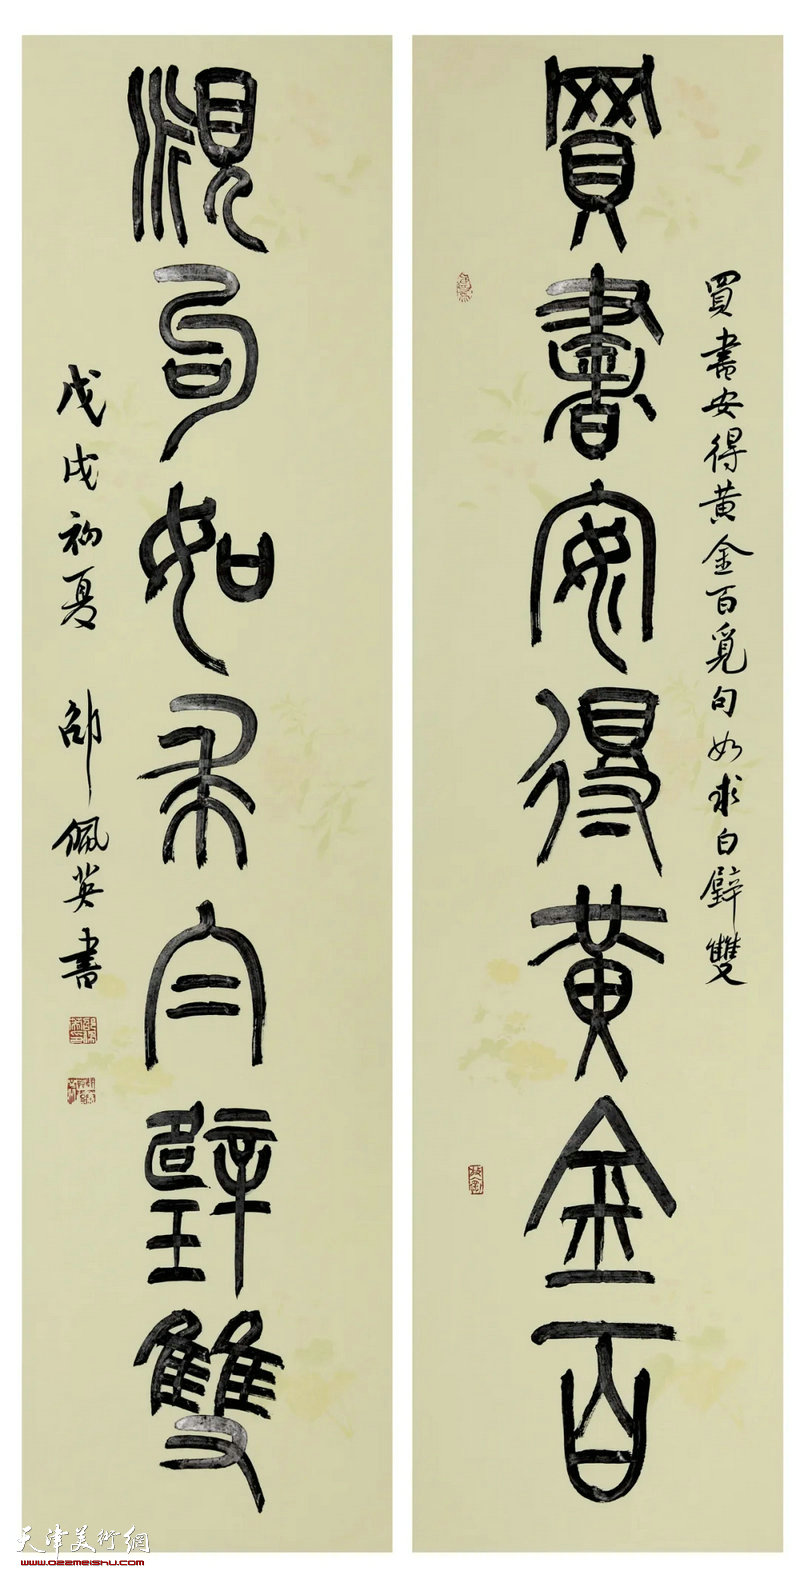 買書安得黃金百覓句如求白璧雙
買書安得黃金百
覓句如求白璧雙
戊戌初夏 邵佩英書
天津美術網
www.022meishu.com